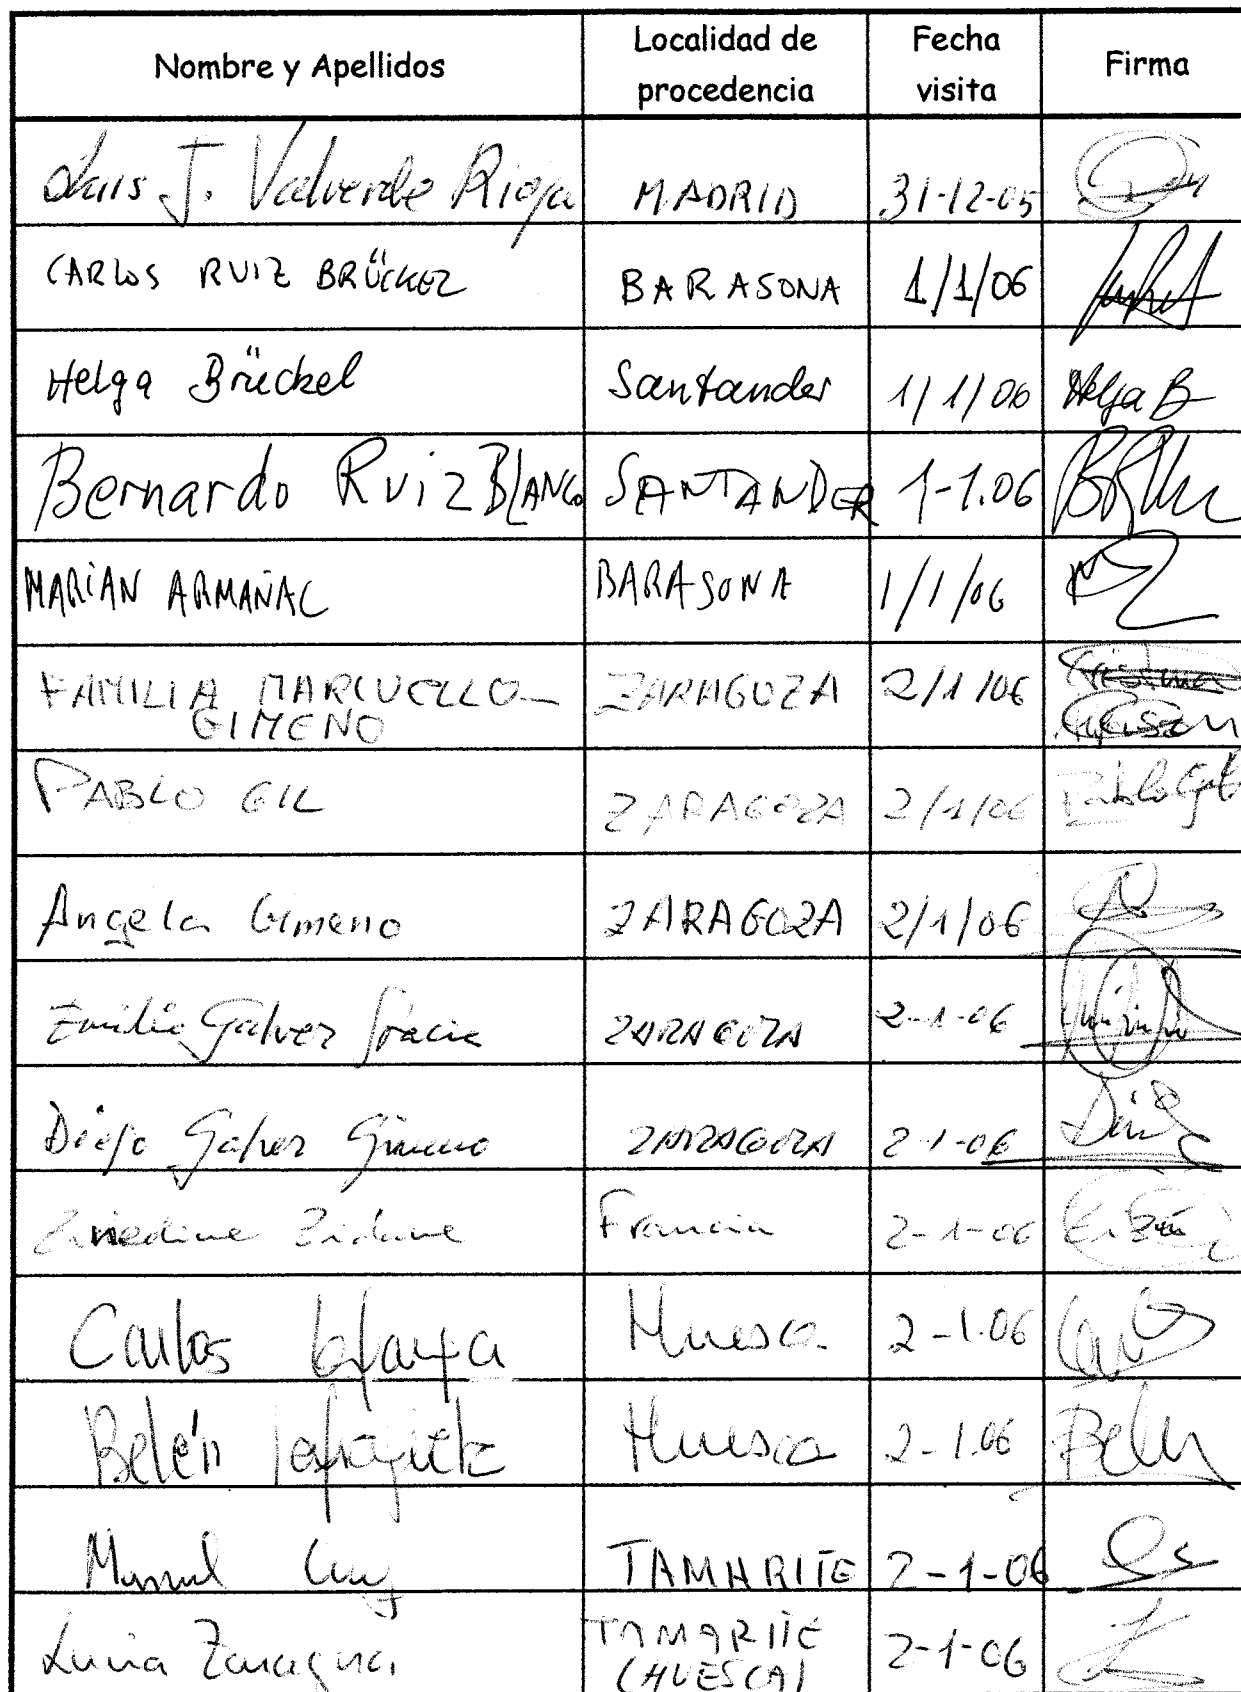 Nombre y Apellidos Localidad de procedencia Fecha visita Firma
Luis J. Valverde Rioja MADRID 31-12-05
CARLOS RUIZ BRÜCKEL BARASONA 1/1/06
Helga Brückel Santander 1/1/06 Helga B
Bernardo Ruiz BLANCO SANTANDER 1-1.06
MARIAN ARMAÑAC BARASONA 1/1/06
FAMILIA MARCUELLO- ZARAGOZA 2/1/06
GIMENO
PABLO GIL ZARAGOZA 2/1/06 Pablo Gil
Angela Gimeno ZARAGOZA 2/1/06
Emilio Galvez Gracia ZARAGOZA 2-1-06
Diego Galvez Gimeno ZARAGOZA 2-1-06
Zinedine Zidane Francia 2-1-06
Carlos Huesca 2-1.06
Belén Huesca 2-1.06 Belén
Manuel TAMARITE 2-1-06
Luisa TAMARITE 2-1-06
(HUESCA)